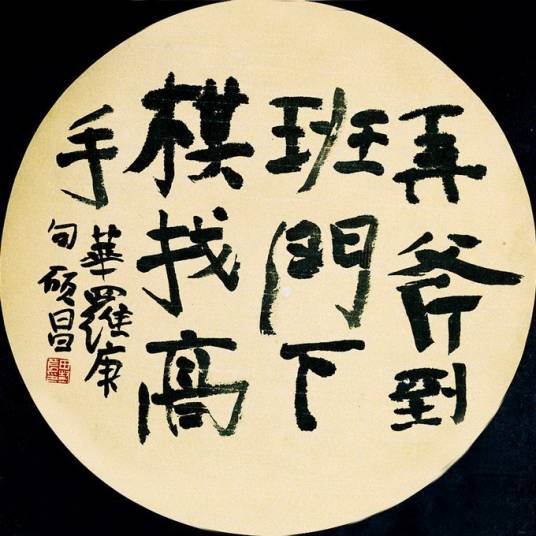 弄斧到
班門下
棋找高
手
華羅庚
句 硕昌